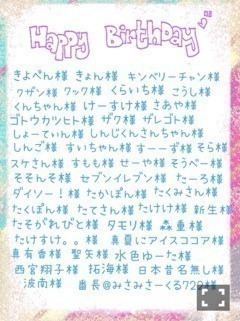 Happy Birthday
きよぺん様 きょん様 キンベリーチャン様
クザン様 クック様 くらいち様 こうし様
くんちゃん様 けーすけ様 さあや様
ゴトウカツヒト様 ザク様 ザレゴト様
しょーていん様 しんじくんさちゃん様
しんご様 すぃちゃん様 すーーず様 そら様
スケさん様 すもも様 せーや様 そうべー様
そそんそ様 セブンイレブン様 たーろ様
ダイソー!様 たかぽん様 たくみさん様
たくぽん様 たてさん様 たけけ様 新生様
たそがれびと様 タモリ様 森重様
たけすけ。。様 真夏にアイスココア様
真有香様 聖矢様 水色ゆーた様
西宮翔子様 拓海様 日本昔名無し様
波南様 番長@みさみさーくる729様